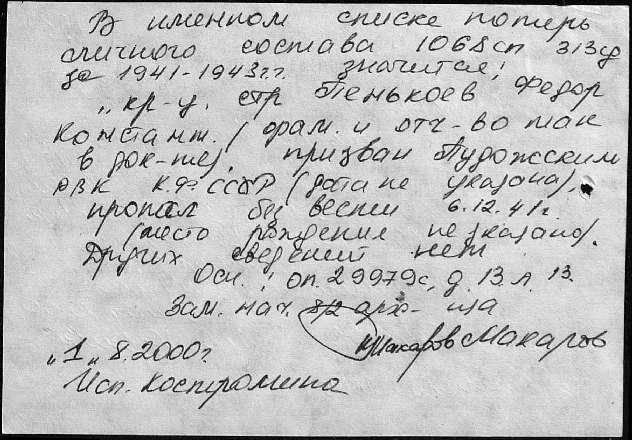 В именном списке потерь
личного состава 1068сп 313сд
за 1941-1943гг. значится:
„кр-ц. стр Пенькоев Федор
Констант. (фам. и отч-во так
в док-те), призван Пудожским
РВК К.Ф.ССР (дата не указана),
пропал без вести 6.12.41г.
(место рождение не указано).
Других сведений нет.
Осн.: оп. 29979с, д. 13. л. 13.
Зам. нач. арх-ща
Макаров Макаров
„1„ 8.2000г.
Исп. Костромина